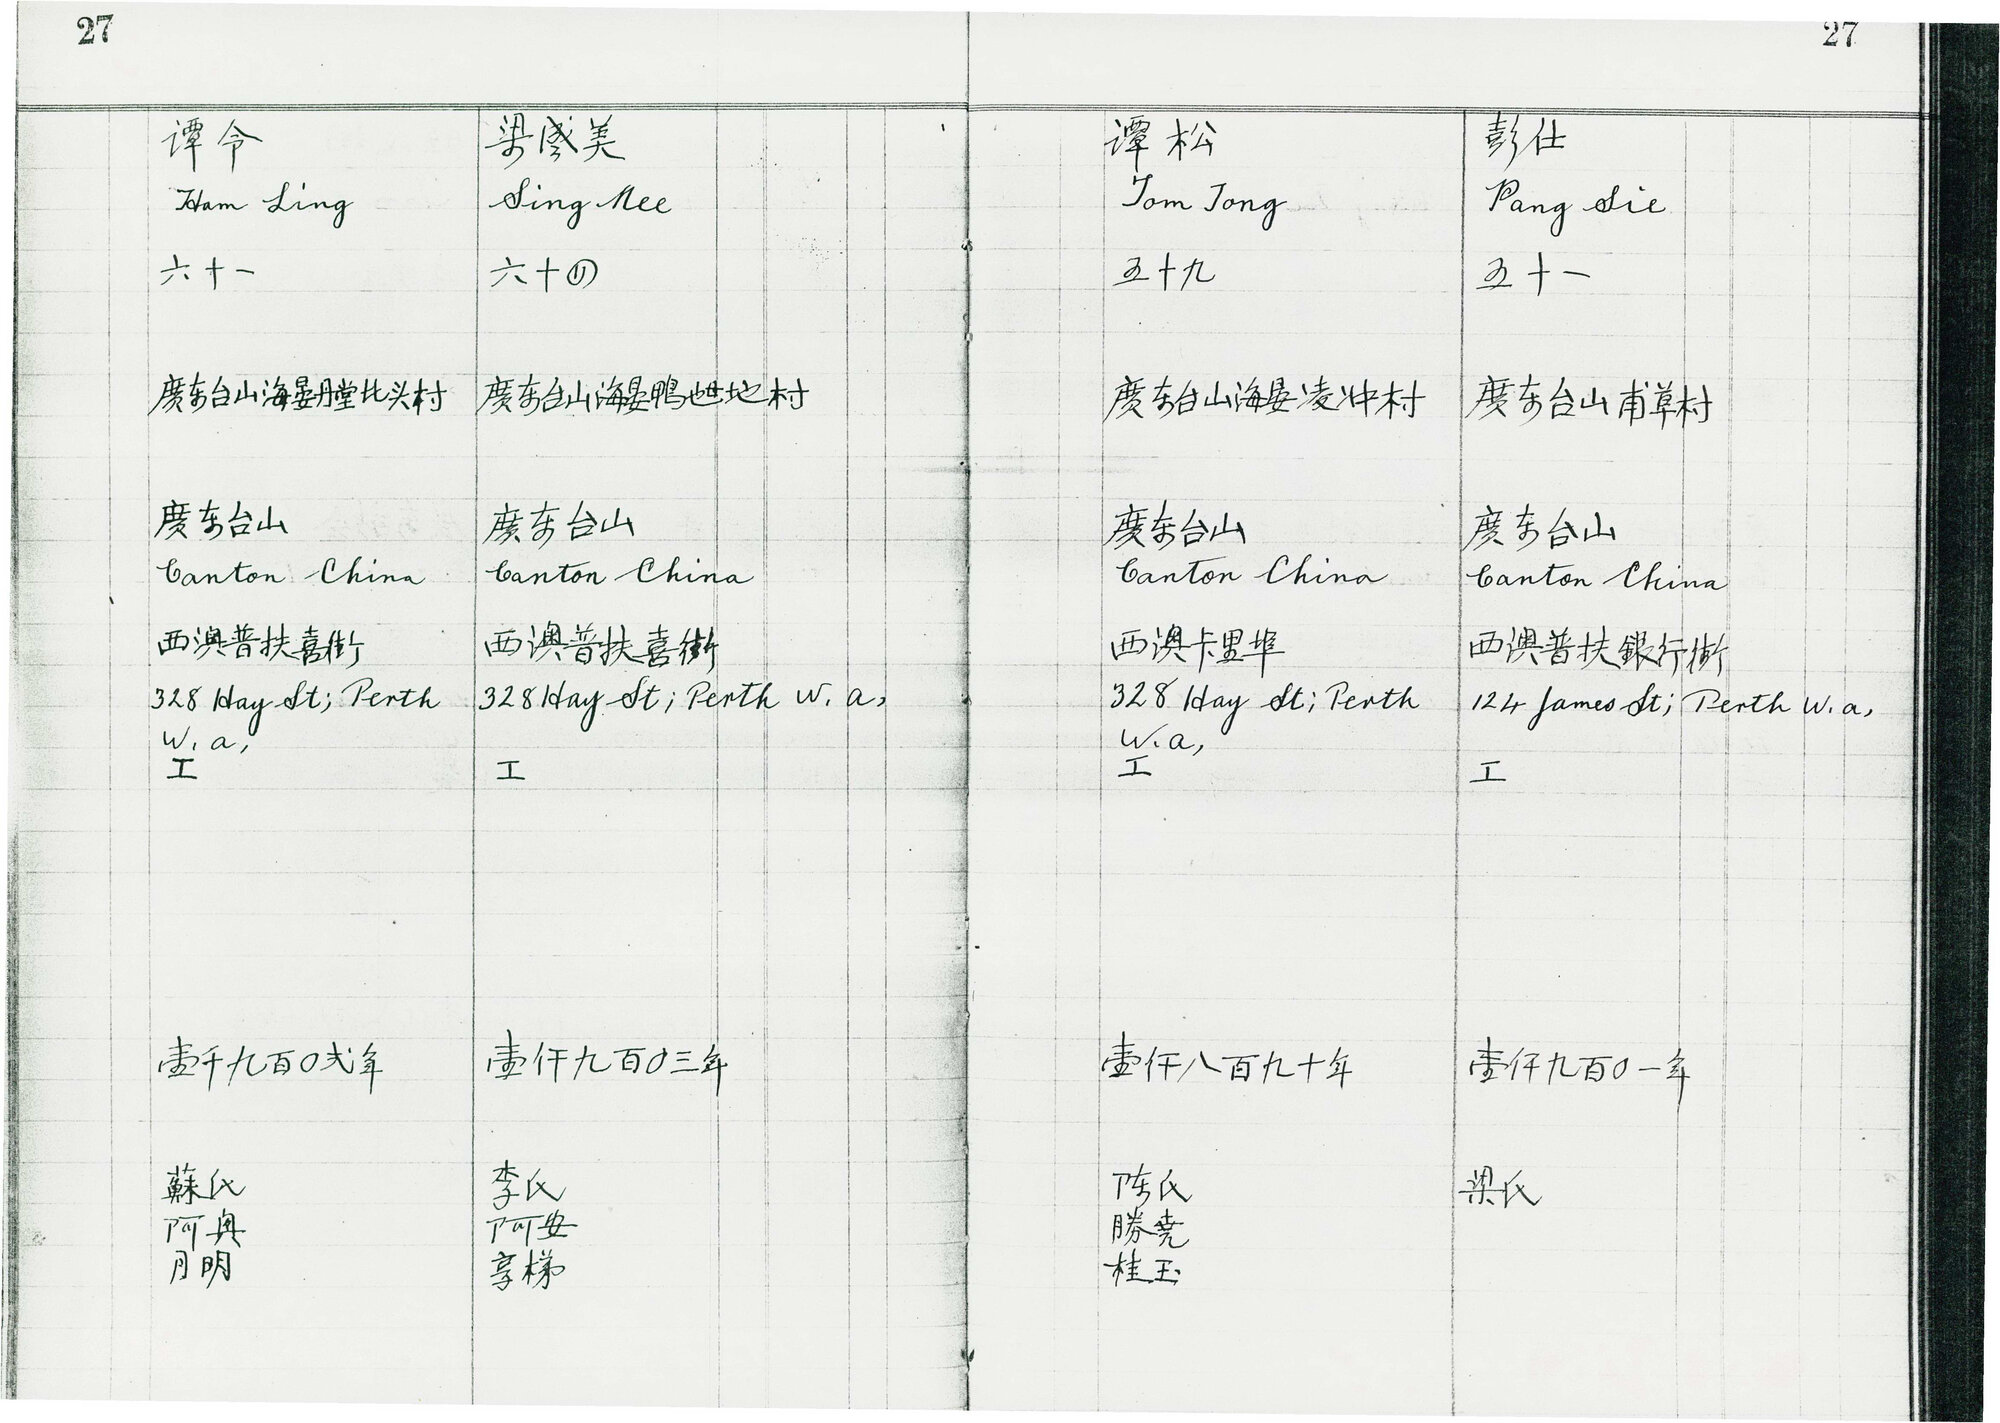 27
谭令
Ham Ling
六十一
廣东台山海晏丹堂比头村
廣东台山
Canton China
西澳普扶喜街
328 Hay St; Perth
W. a,
工
壹千九百0弍年
蘇氏
阿興
月明
梁盛美
Sing Mee
六十四
廣东台山海晏鴨乸地村
廣东台山
Canton China
西澳普扶喜街
328 Hay St; Perth W. a,
工
壹仟九百0三年
李氏
阿安
享梯
27
谭松
Tom Tong
五十九
廣东台山海晏凌冲村
廣东台山
Canton China
西澳卡里埠
328 Hay St; Perth
W. a,
工
壹仟八百九十年
陈氏
勝堯
桂玉
彭仕
Pang Sie
五十一
廣东台山甫草村
廣东台山
Canton China
西澳普扶銀行街
124 James St; Perth W. a,
工
壹仟九百0一年
梁氏